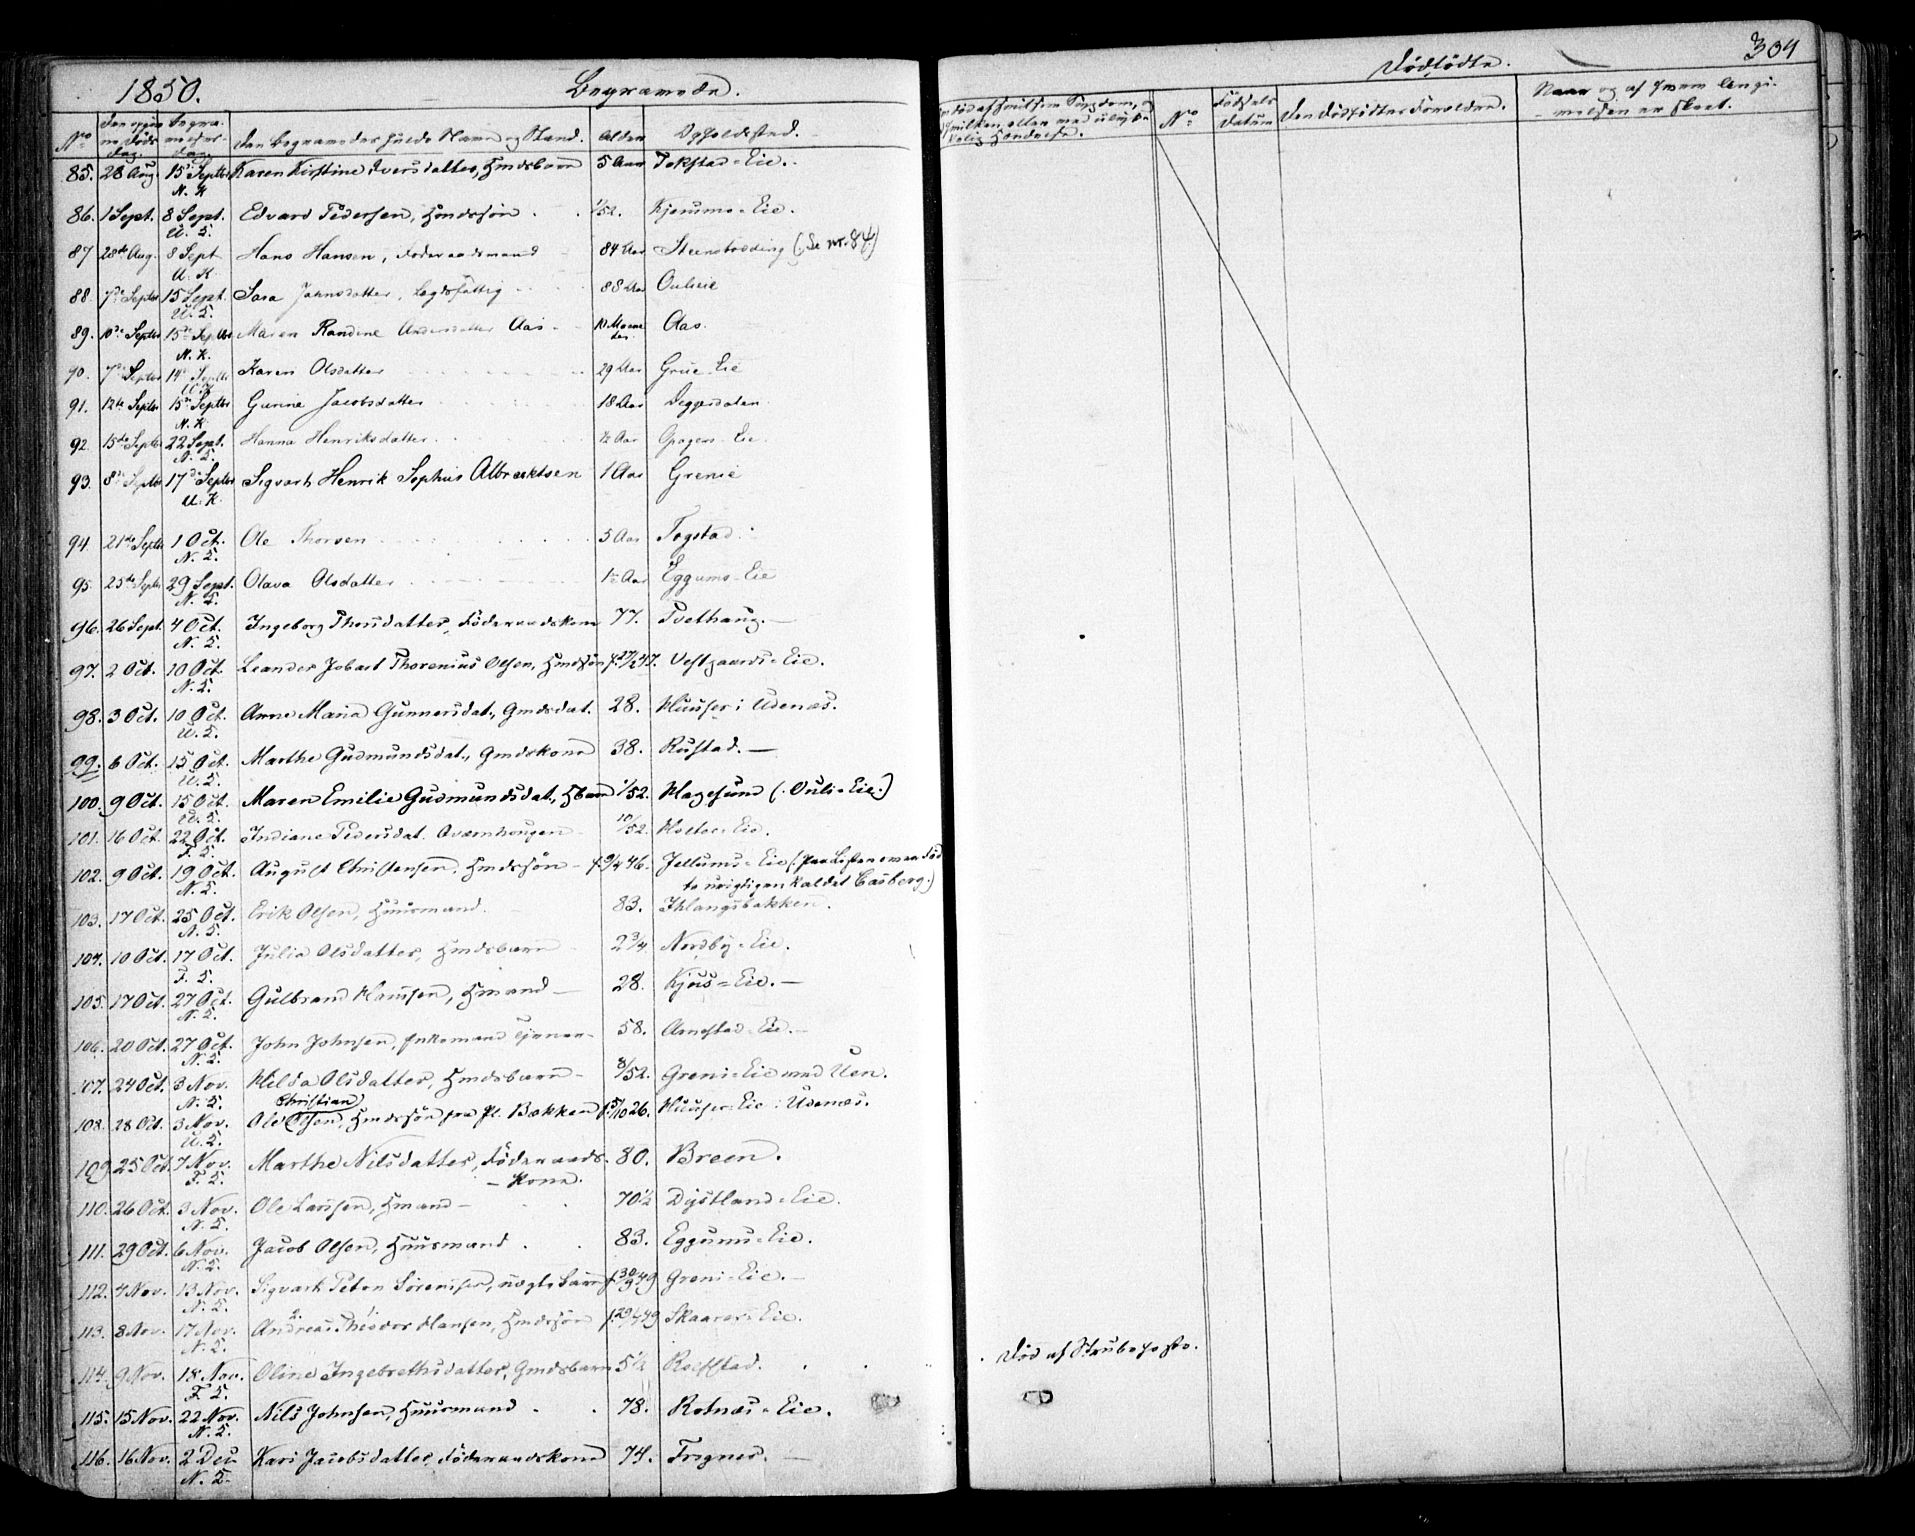 1850.
Begravede.
No
Den Begravedes fulde Navn og Stand.
Alder
Opholdssted.
85. 28 Aug. 15de Septbr Karen Kirstine Iversdatter, Hmdsbarn 5 Aar Tokstad-Eie.
N. K
86. 1 Sept. 8 Sept. Edvard Pedersen, Hmdssøn 1/52. Kjerums-Eie.
U. K.
87 28de Aug. 8 Sept Hans Hansen, Føderaadsmand 84 Aar (Se nr. 84)
U. K
88. 7de Septbr 15 Sept. Sara Johnsdatter, Lægdsfattig 88 Aar Ouleie
U. K.
89. 10de Septbr 15de Septbr Maren Randine Andersdatter Aas 10 Maane
der. Aas.
N. K.
90. 7de Septbr 14de Septbr Karen Olsdatter 29 Aar Grue Eie
91. 12te Septbr 15de Septbr Gurine Jacobsdatter 18 Aar
N. K.
92. 15de Septbr 22 Sept. Hanna Henriksdatter 1/2 Aar Eie
N. K.
93. 8de Septbr 17de Septbr Sigvart Henrik Sophus Albrecktsen 1 Aar Grenie
U. K.
94. 21de Septbr 1 Oct. Ole Thorsen 5 Aar Togstad
N. K.
95. 25de Septbr 29 Sept. Olava Olsdatter Aar Eggums-Eie
N. K.
96. 26 Sept. 4 Oct. Ingeborg Thorsdatter, Føderaadskone 77. Tvethaug.
N. K.
97. 2 Oct. 10 Oct. Leander Jobart Thorenius Olsen, Hmdssøn Vestgaards-Eie.
N. K.
98. 3 Oct. 10 Oct. Anne Maria Gunnersdat., Gmdsdat. 28. Huuser i Udenæs.
U. K.
99. 6 Oct. 15 Oct. Marthe Gudmundsdat., Gmdskone 38. Rustad.
U. K.
100. 9 Oct. 15 Oct. Maren Emilie Gudmundsdat., Hbarn 1/52. Hagesund (Ouls-Eie.)
U. K.
101. 16 Oct. 22 Oct. Indiane Pedersdat. Qværnhougen 10/52. Holter-Eie.
F. K.
102. 9 Oct. 19 Oct. August Christensen, Hmdssøn f. 9/4 46. Jellums-Eie (paa Listen over Død
te urigtigen kaldet Casberg.)
N. K.
103. 17 Oct. 25 Oct. Erik Olsen, Huusmand. 83. Ihlangsbakken.
N. K.
104. 10 Oct. 17 Oct. Julia Olsdatter, Hmdsbarn 2 3/4 Nordby-Eie.
F. K.
105. 17 Oct. 27 Oct. Gulbrand Hansen, Hmand 28. Kjos-Eie.
N. K.
106. 20 Oct. 27 Oct. John Johnsen, Enkemand Tjener 58. Arnestad-Eie.
N. K.
107. 24 Oct. 3 Nov. Hilda Olsdatter, Hmdsbarn 8/52. Greni-Eie med Uen.
N. K.
Christian
108. 28 Oct. 3 Nov. Ole Olsen, Hmdssøn fra Pl. Bækken f. 5/10 26. Huuser-Eie i Udenæs.
U. K.
109 25 Oct. 7 Nov. Marthe Nilsdatter, Føderaads- 80. Breen.
F. K. -Kone.
110. 26 Oct. 3 Nov. Ole Larssen, Hmand 70 1/2 Dystland-Eie.
N. K.
111. 29 Oct. 6 Nov. Jacob Olsen, Huusmand 83. Eggums-Eie.
N. K.
112. 4 Nov. 13 Nov. Sigvart Peter Sørensen, uægte Barn f. 30/9 49 Greni-Eie.
N. K.
113. 8 Nov. 17 Nov. Andreas Theodor Hansen, Hmdssøn Skaarer-Eie.
N. K.
114. 9 Nov. 18 Nov. Oline Ingebrethsdatter, Gmdsbarn 5 1/2 Reistad.
F. K.
115. 15 Nov. 22 Nov. Nils Johnsen, Huusmand 78. Rotnæs-Eie.
N. K.
116. 16 Nov. 2 Dec Kari Jacobsdatter, Føderaadskone 74. Frogner.
N. K.
Dødfødte.
304
No
Fødsels
Datum
Den Dødfødtes Forældre.
Naar og af hvem Jangi-
velsen er skeet.
Død af Strubehoste.